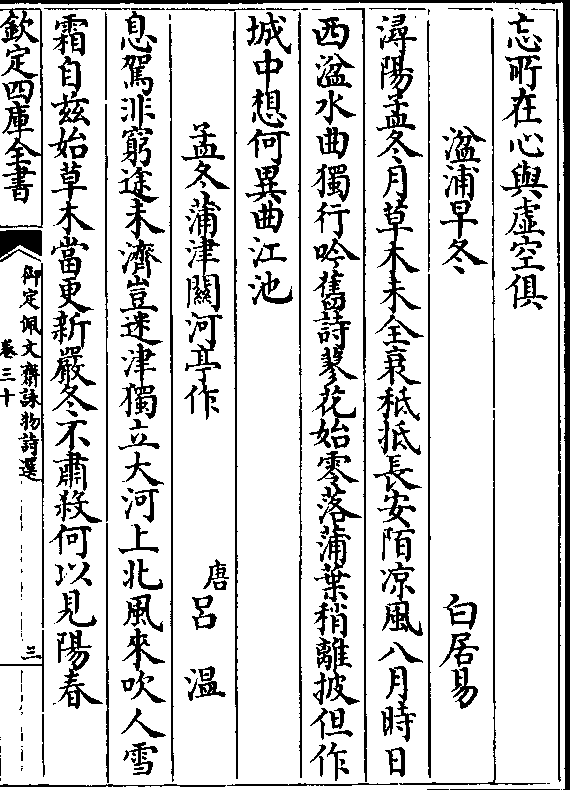 忘所在心與虛空俱
湓浦早冬　白居易
潯陽孟冬月草木未全衰秪抵長安陌凉風八月時日
西湓水曲獨行吟舊詩蓼花始零落蒲葉稍離披但作
城中想何異曲江池
孟冬蒲津關河亭作　唐呂溫
息駕非窮途未濟豈迷津獨立大河上北風來吹人雪
霜自茲始草木當更新嚴冬不肅殺何以見陽春
欽定四庫全書
御定佩文齋詠物詩選
卷三十
三